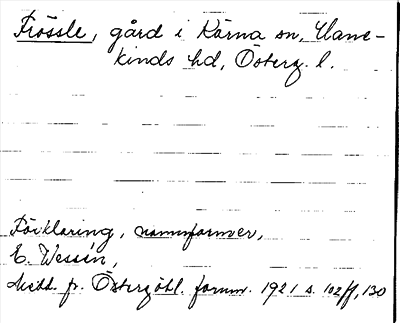 Frössle, gård i Kärna sn, Hane-
kinds hd, Österg. l.
Förklaring, namnformer,
E. Wessén,
Medd. fr. Östergötl. fornm. 1921 s. 102ff, 130